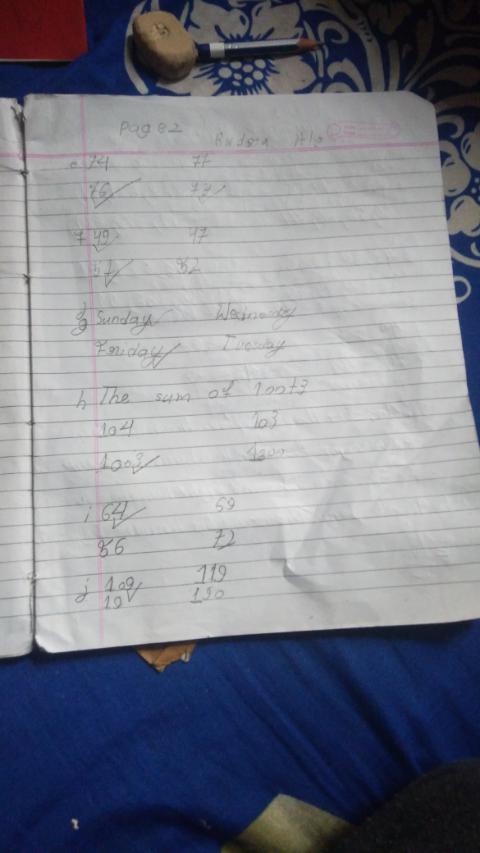 Page 82
e 74 77
76 72
f 49 47
47 82
g Sunday Wednesday
Friday Tuesday
h The sum of 100+3
104 103
1003 1300
i 64 69
86 72
j 109 119
19 190